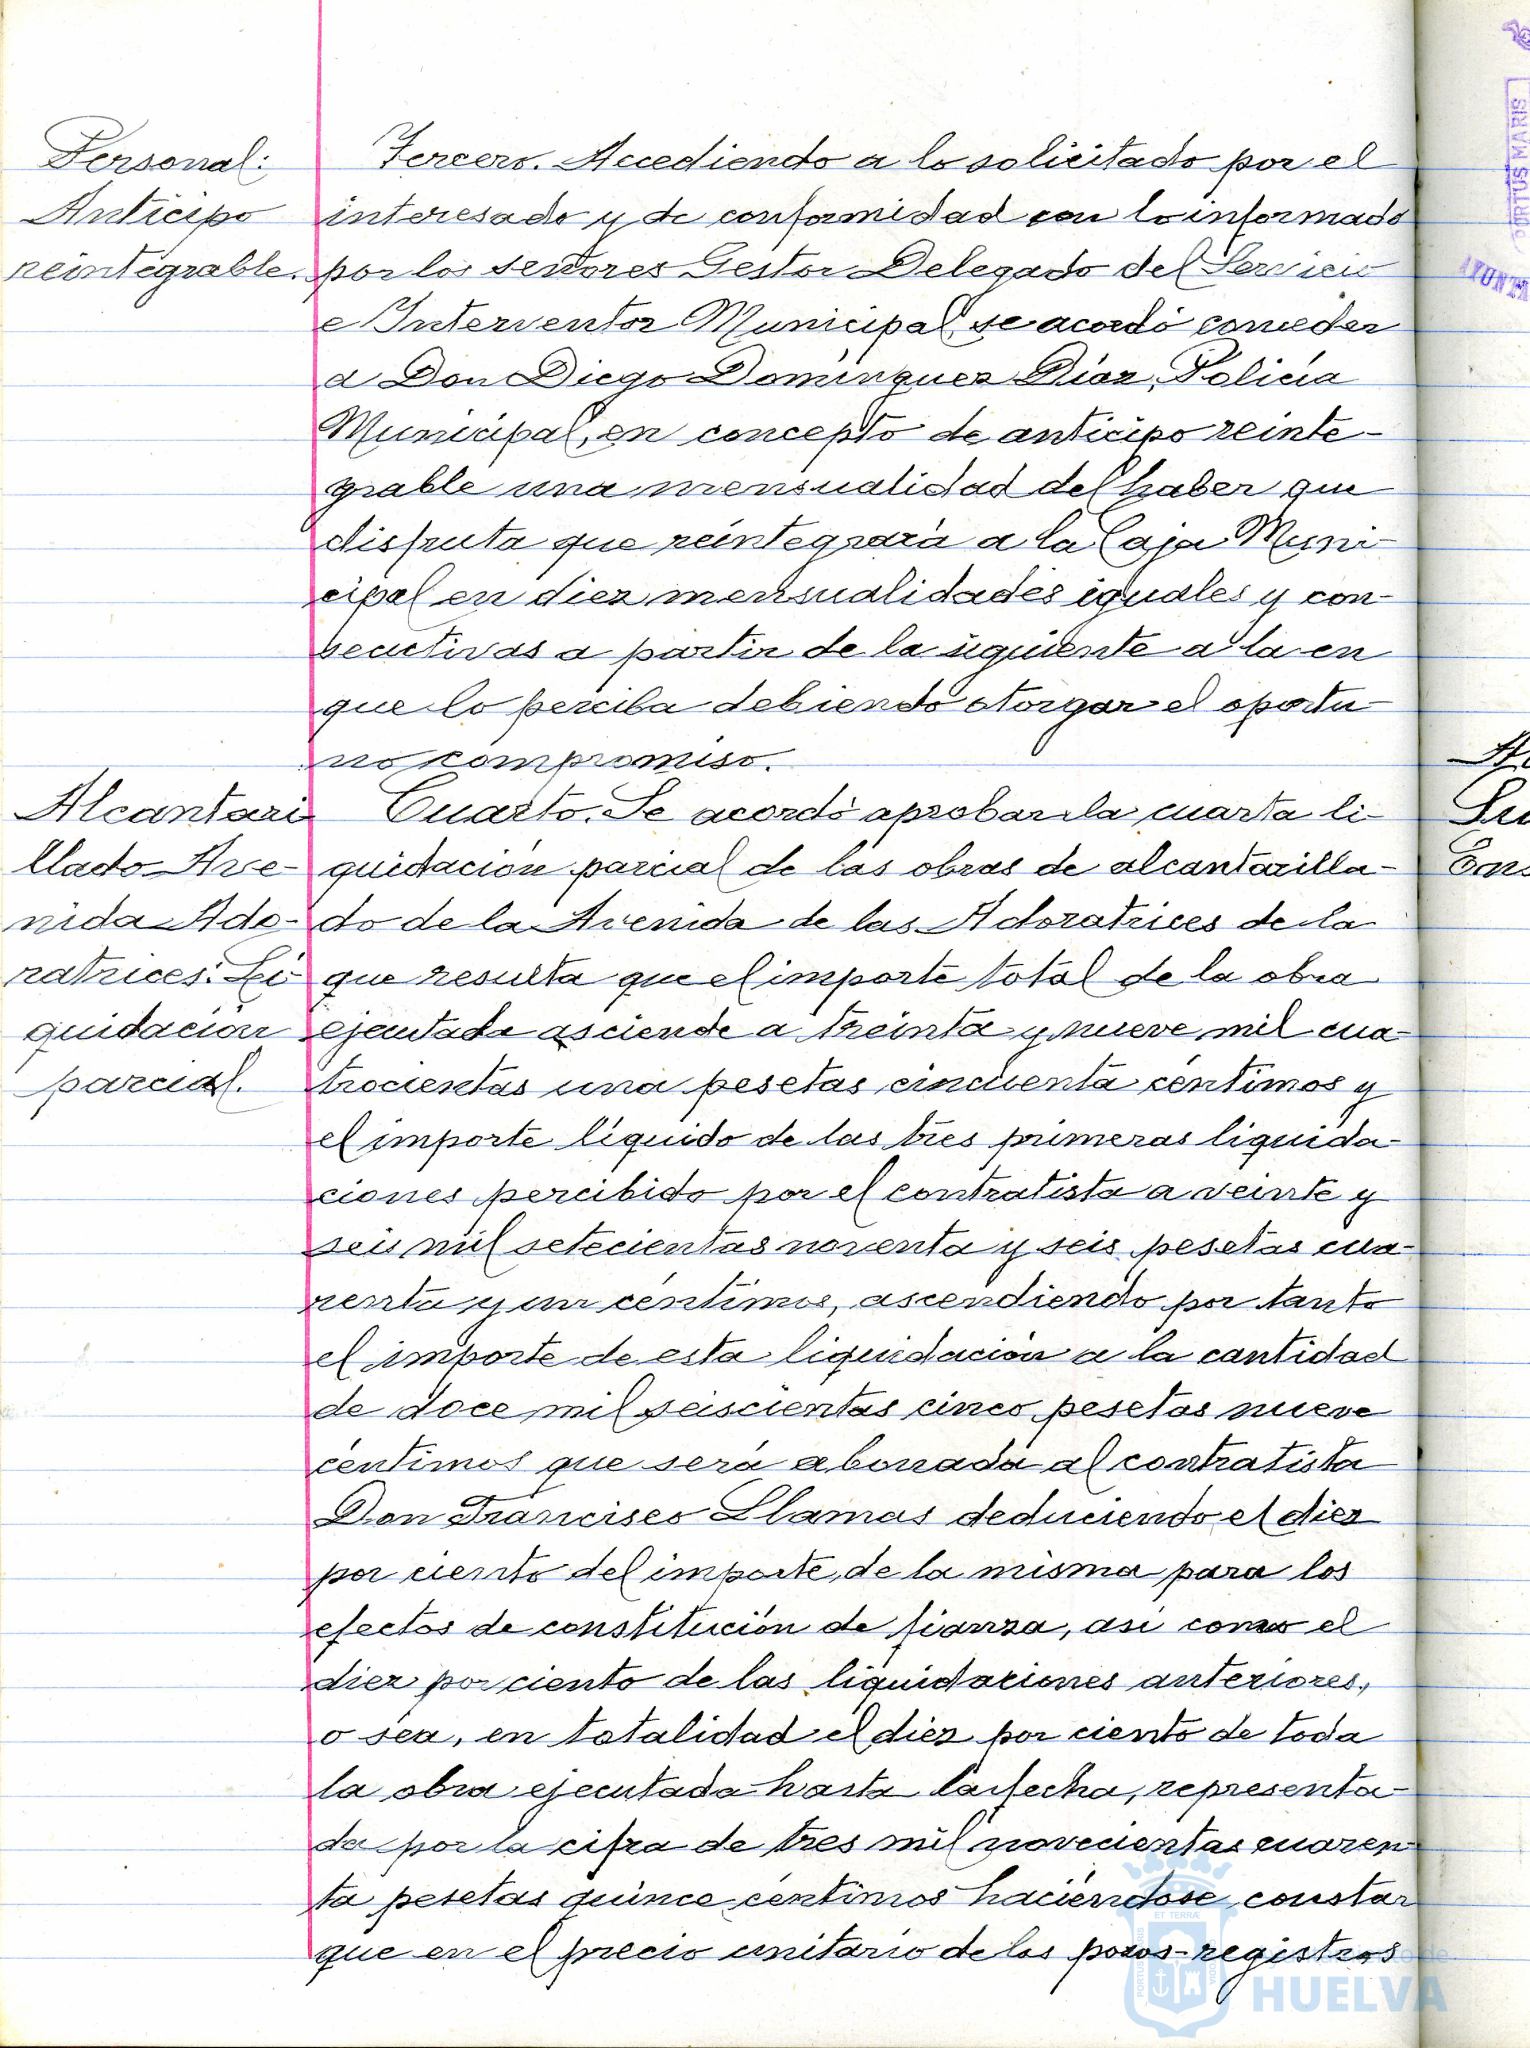 Personal:
Anticipo
reintegrable.
Tercero. Accediendo a lo solicitado por el
interesado y de conformidad con lo informado
por los señores Gestor Delegado del Servicio
e Interventor Municipal, se acordó conceder
a Don Diego Domínguez Díaz, Policía
Municipal, en concepto de anticipo reinte-
grable una mensualidad del haber que
disfruta que reintegrará a la Caja Muni-
cipal en diez mensualidades iguales y con-
secutivas a partir de la siguiente a la en
que lo perciba debiendo otorgar el oportu-
no compromiso.
Alcantari
llado Ave-
nida Ado-
ratrices: Li
quidación
parcial.
Cuarto. Se acordó aprobar la cuarta li-
quidación parcial de las obras de alcantarilla-
do de la Avenida de las Adoratrices de la
que resulta que el importe total de la obra
ejecutada asciende a treinta y nueve mil cua-
trocientas una pesetas cincuenta céntimos y
el importe líquido de las tres primeras liquida-
ciones percibido por el contratista a veinte y
seis mil setecientas noventa y seis pesetas cua-
renta y un céntimos, ascendiendo por tanto
el importe de esta liquidación a la cantidad
de doce mil seiscientas cinco pesetas nueve
céntimos que será abonada al contratista
Don Francisco Llamas deduciendo el diez
por ciento del importe de la misma para los
efectos de constitución de fianza, así como el
diez por ciento de las liquidaciones anteriores,
o sea, en totalidad el diez por ciento de toda
la obra ejecutada hasta la fecha, representa-
da por la cifra de tres mil novecientas cuaren-
ta pesetas quince céntimos haciéndose constar
que en el precio unitario de los pozos-registros
PORTUS MARIS
AYUNTA
Su
ET TERRÆ
HUELVA